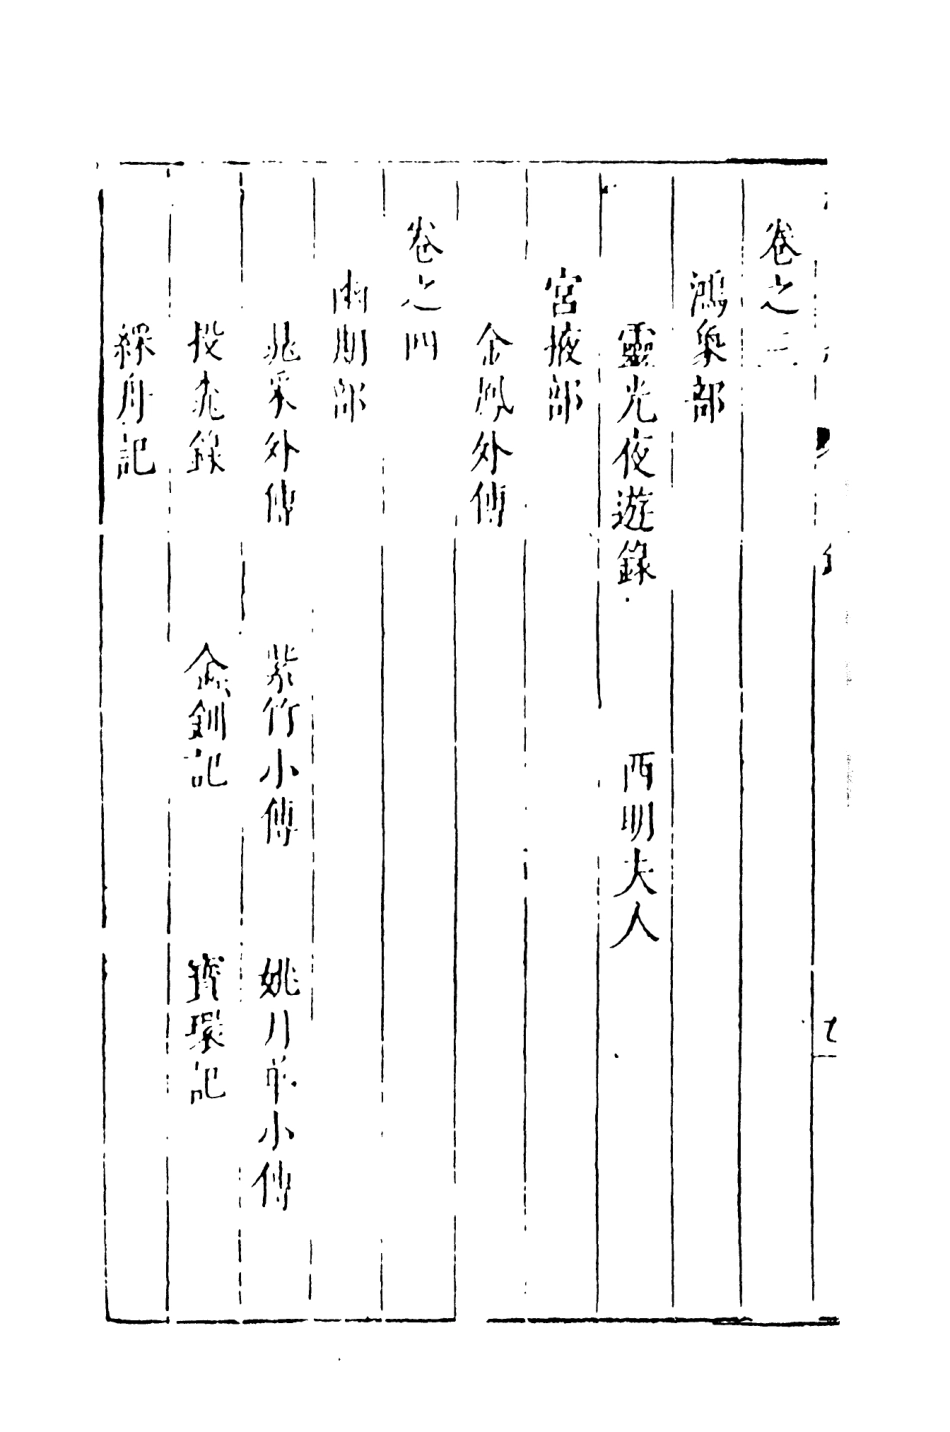 卷之三
鴻象部
靈光夜遊錄　西明夫人
宮掖部
金鳳外傳
卷之四
幽期部
晁采外傳　紫竹小傳　姚月華小傳
投桃錄　金釧記　寶環記
綵舟記